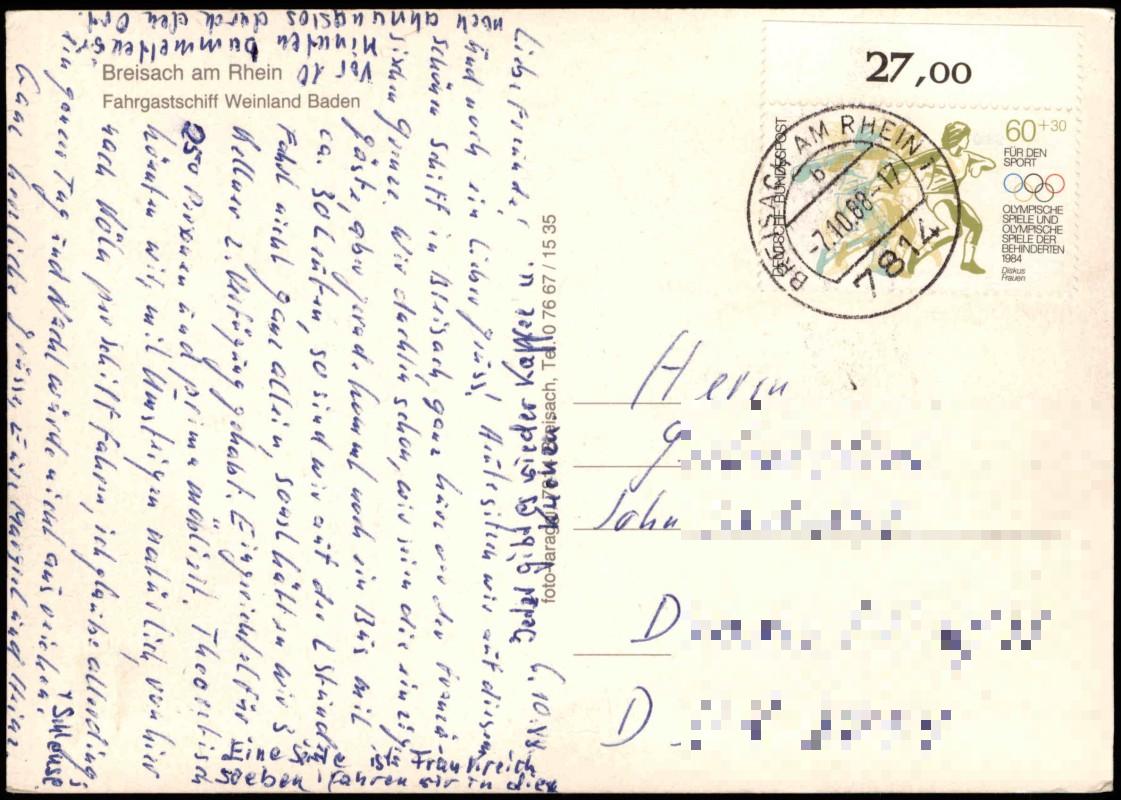 Breisach am Rhein
Fahrgastschiff Weinland Baden
foto-laragh, 7814 Breisach, Tel. 0 76 67 / 15 35
27,00
60+30
FÜR DEN
SPORT
OLYMPISCHE
SPIELE UND
OLYMPISCHE
SPIELE DER
BEHINDERTEN
1984
Diskus
Frauen
DEUTSCHE BUNDESPOST
BREISACH AM RHEIN 1
b
-7.10.88-17
7814
Herrn
John
D
D
6.10.88
Liebe Freunde,
und noch ein lieber Gruss! Heute sitzen wir auf diesem
schönen Schiff in Breisach, ganz hier an der französi-
sischen Grenze. Wir dachten schon, wir seien die einzigen
Gäste, aber gerade kommt noch ein Bus mit
ca. 30 Leuten, so sind wir auf der 2 Stunden
Fahrt nicht ganz allein, sonst hätten wir 3
Kellner z. Verfügung gehabt. Eingerichtet für
250 Personen und prima möbliert. Theoretisch
könnten wir mit Umsteigen natürlich von hier
nach Köln per Schiff fahren, ich glaube allerdings
ein ganzer Tag und Nacht würde nicht ausreichen.
Ganz herzliche Grüsse, Eure Margret und Heinz
Vor 10
Minuten bummelten wir
noch ahnungslos durch den Ort.
Jetzt gibt es wieder Kaffee u.
Kuchen.
Eine Seite ist Frankreich
soeben fahren wir in die
Schleuse